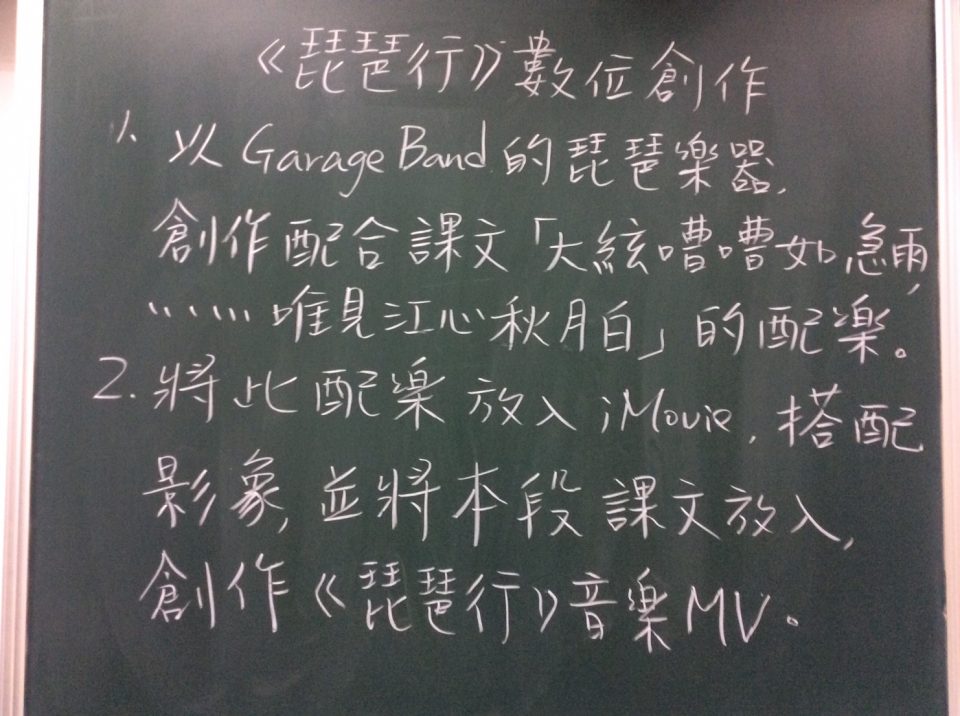 《琵琶行》數位創作
1. 以 GarageBand 的琵琶樂器,
創作配合課文「大絃嘈嘈如急雨,
……唯見江心秋月白」的配樂。
2. 將此配樂放入 iMovie, 搭配
影象, 並將本段課文放入,
創作《琵琶行》音樂MV。